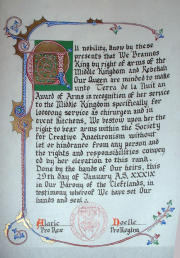 All nobility, know by these
presents that We Brannos
King by right of arms of the
Middle Kingdom and Rebekah
Our Queen are minded to make
unto Cerra de la Nuit an
Award of Arms in recognition of her service
to the Middle Kingdom specifically for
service as chirurgeon and in
We bestow upon her the
right to bear arms within the Society
for Creative Anachronism without
let or hindrance from any person and
the rights and responsibilities convey
ed by her elevation to this rank.
Done by the hands of Our heirs, this
29th day of January A.S. XXXIX
in Our Barony of the Cleftlands, in
testimony whereof We have set Our
hands and seal.
Alaric Noelle
Pro Rex Pro Regina